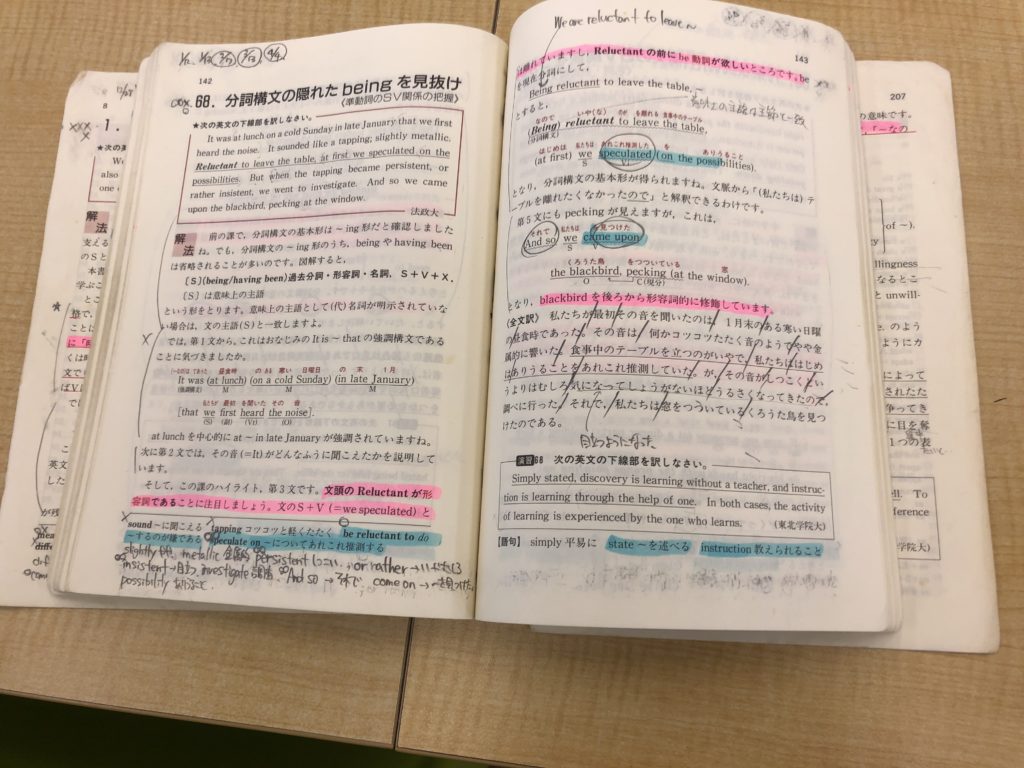 142
68. 分詞構文の隠れた being を見抜け
《準動詞のSV関係の把握》
★次の英文の下線部を訳しなさい。
It was at lunch on a cold Sunday in late January that we first
heard the noise. It sounded like a tapping; slightly metallic.
Reluctant to leave the table, at first we speculated on the
possibilities. But when the tapping became persistent, or
rather insistent, we went to investigate. And so we came
upon the blackbird, pecking at the window.
法政大
解法
前の課で、分詞構文の基本形は〜ing形だと確認しました
ね。でも、分詞構文の〜ing形のうち、beingやhaving been
は省略されることが多いのです。図解すると、
〔S〕(being/having been)過去分詞・形容詞・名詞, S+V+X.
〔S〕は意味上の主語
という形をとります。意味上の主語として(代)名詞が明示されていな
い場合は、文の主語(S)と一致しますよ。
では、第1文から。これはおなじみの It is〜that の強調構文である
ことに気づきましたか。
昼食時 のある 寒い 日曜日 の 末 1月
It was (at lunch) (on a cold Sunday) (in late January)
(強調構文) M M M
私たちが 最初 を聞いた その 音
[that we first heard the noise].
(S) (副) (Vt) (O)
at lunch を中心的に at〜in late January が強調されていますね。
次に第2文では、その音(=It)がどんなふうに聞こえたかを説明して
います。
そして、この課のハイライト、第3文です。文頭の Reluctant が形
容詞であることに注目しましょう。文のS+V(=we speculated)と
sound 〜に聞こえる tapping コツコツと軽くたたく be reluctant to do
〜するのが嫌である speculate on 〜についてあれこれ推測する
slightly metallic persistent しつこい or rather
insistent investigate And so → それで come on → を見つけた
possibility
We are reluctant to leave~
143
は離れていますし、Reluctant の前に be 動詞が欲しいところです。be
を現在分詞にして、
Being reluctant to leave the table, ~
とすると、
なので いや(な) のが を離れる 食事中のテーブル
(Being) reluctant to leave the table,
(分詞構文)
はじめは 私たちは あれこれ推測した を ありうること
(at first) we speculated (on the possibilities).
S V
となり、分詞構文の基本形が得られますね。文脈から「(私たちは)テ
ーブルを離れたくなかったので」と解釈できるわけです。
第5文にも pecking が見えますが、これは、
それで 私たちは を見つけた
And so we came upon
S V
くろうた鳥 をつついている 窓
the blackbird, pecking (at the window).
O C(現分)
となり、blackbird を後ろから形容詞的に修飾しています。
《全文訳》 私たちが最初その音を聞いたのは、1月末のある寒い日曜
の昼食時であった。その音は、何かコツコツたたく音のようでやや金
属的に響いた。食事中のテーブルを立つのがいやで、私たちははじめ
はありうることをあれこれ推測していた。が、その音がしつこくとい
うよりはむしろ気になってしょうがないほどうるさくなってきたので、
調べに行った。それで、私たちは窓をつついているくろうた鳥を見つ
けたのである。
演習68 次の英文の下線部を訳しなさい。
Simply stated, discovery is learning without a teacher, and instruc-
tion is learning through the help of one. In both cases, the activity
of learning is experienced by the one who learns. (東北学院大)
[語句] simply 平易に state 〜を述べる instruction 教えられること
207